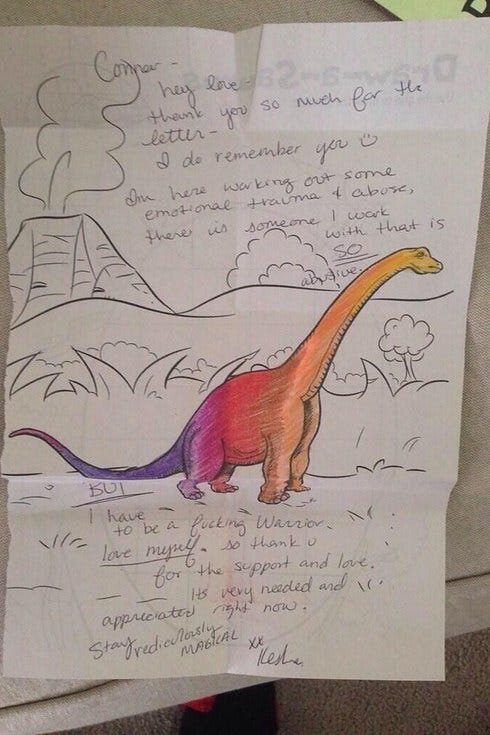 Connor -
hey love -
thank you so much for the
letter -
I do remember you
Im here working out some
emotional trauma & abuse,
there is someone I work
with that is
SO
abusive.
BUT
I have
to be a fucking Warrior.
love myself. so thank u
for the support and love.
Its very needed and
appreciated right now.
Stay rediculously
MAGICAL xx
Kesha
Draw-a-Saurus